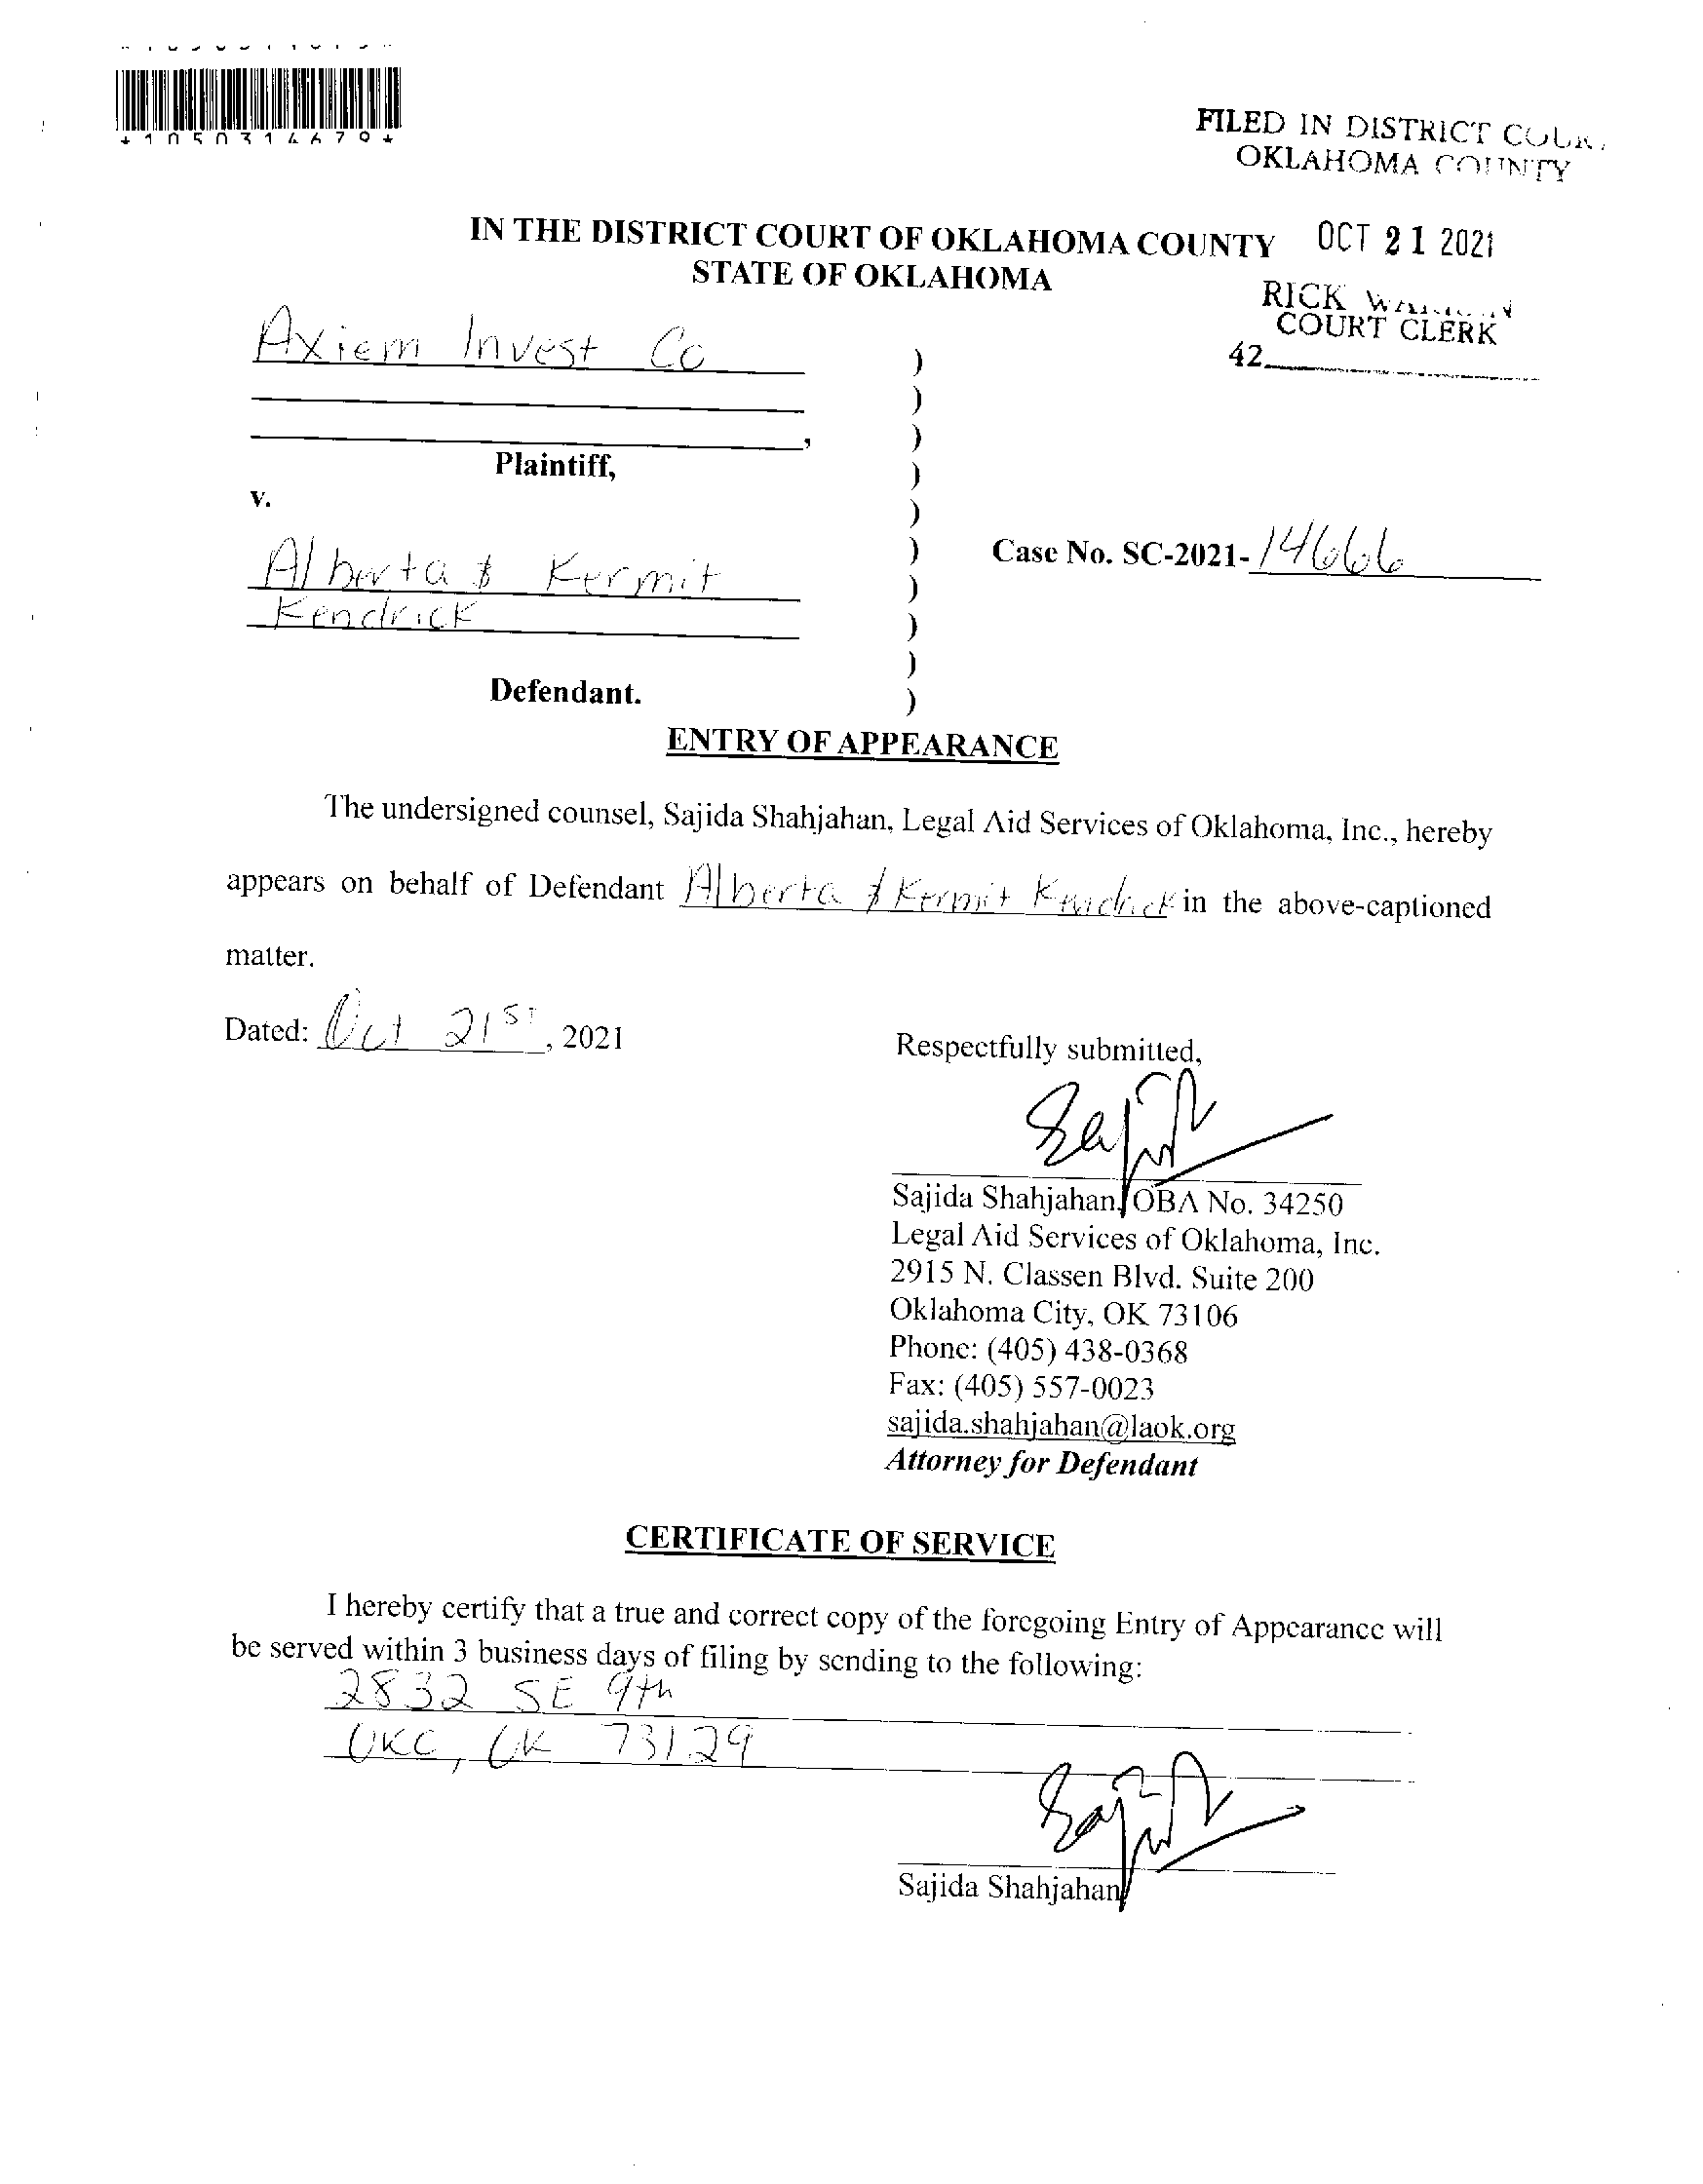 *1050314679*
FILED IN DISTRICT
OKLAHOMA COUNTY
IN THE DISTRICT COURT OF OKLAHOMA COUNTY
STATE OF OKLAHOMA
OCT 21 2021
RICK
COURT CLERK
42
Axiem Invest Co
)
)
, )
Plaintiff, )
v. )
Alberta & Kermit ) Case No. SC-2021-14666
)
Kendrick )
)
Defendant. )
ENTRY OF APPEARANCE
The undersigned counsel, Sajida Shahjahan, Legal Aid Services of Oklahoma, Inc., hereby
appears on behalf of Defendant Alberta & Kermit Kendrick in the above-captioned
matter.
Dated: Oct 21ST, 2021
Respectfully submitted,
Sajida Shahjahan, OBA No. 34250
Legal Aid Services of Oklahoma, Inc.
2915 N. Classen Blvd. Suite 200
Oklahoma City, OK 73106
Phone: (405) 438-0368
Fax: (405) 557-0023
sajida.shahjahan@laok.org
Attorney for Defendant
CERTIFICATE OF SERVICE
I hereby certify that a true and correct copy of the foregoing Entry of Appearance will
be served within 3 business days of filing by sending to the following:
2832 SE 9th
OKC, OK 73129
Sajida Shahjahan